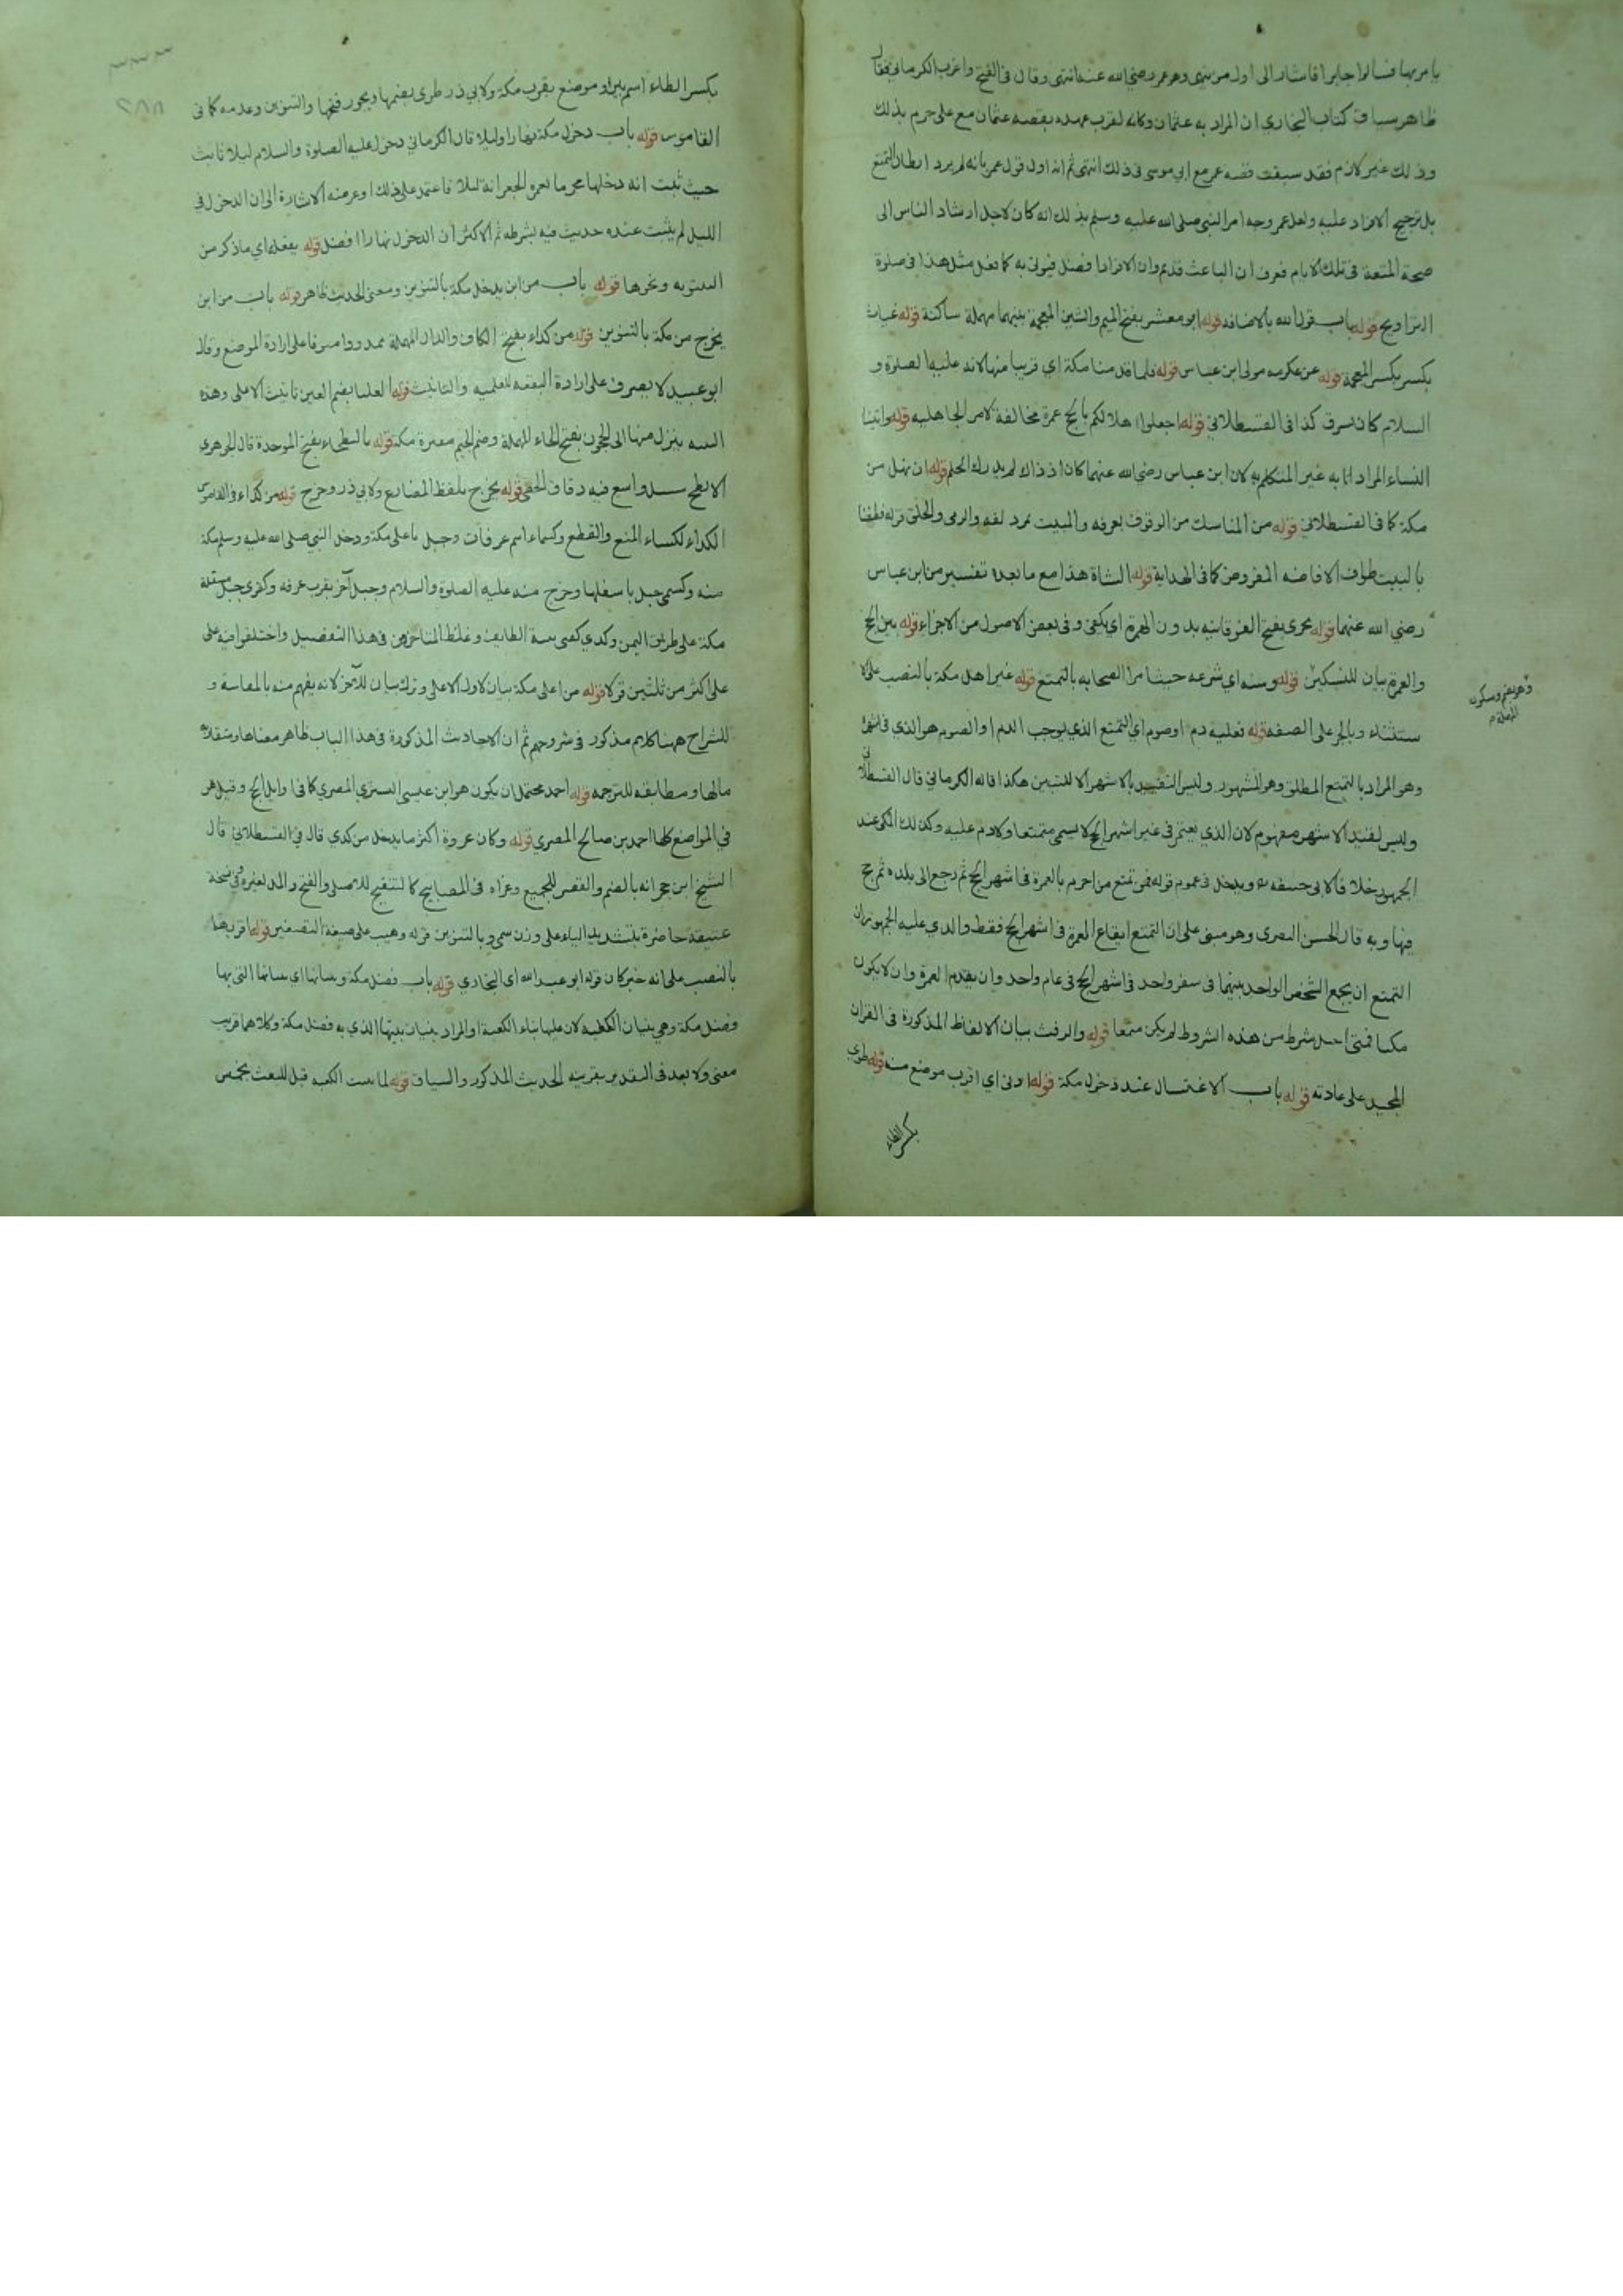 يامر بها فسالوا جابرا فاشار الى ان اول من نهى هو عمر رضي الله عنه انتهى وقال في الفتح واغرب الكرماني فقال
ظاهر سياق كتاب البخاري ان المراد به عثمان وكانه لقرب عهده بقصه عثمان مع على جزم بذلك
وذلك غير لازم فقد سبقت قصه عمر مع ابي موسى في ذلك انتهى ثم انه اول قول عمر بانه لم يرد ابطال التمتع
بل ترجيح الافراد عليه ولعل عمر وجه امر النبي صلى الله عليه وسلم بذلك انه كان لاجل ارشاد الناس الى
صحة المتعة في تلك الايام فعرف ان الباعث قد تم وان الافراد افضل فيوتى به كما فعل مثل هذا في صلوة
التراويح قوله باب قول الله بالاضافه قوله ابو معشر بفتح الميم والشين المعجمة بينهما مهملة ساكنة قوله غياث
بكسر بكسر المعجمة قوله عن عكرمه مولى ابن عباس قوله فلما قدمنا مكة اي قريبا منها لانه عليه الصلوة و
السلام كان بسرف كذا في القسطلاني قوله اجعلوا اهلالكم بالحج عمرة مخالفة لامر الجاهليه قوله واتينا
النساء المراد انا به غير المتكلم به لان ابن عباس رضي الله عنهما كان اذ ذاك لم يدرك الحلم قوله ان نهل من
مكة كما في القسطلاني قوله من المناسك من الوقوف بعرفه والمبيت بمزدلفه والرمى والحلق قوله فطفنا
بالبيت طواف الافاضه المفروض كما في الهداية قوله الشاة هذا مع ما بعده تفسير من ابن عباس
رضي الله عنهما قوله تجزى بفتح الفوقانيه بدون الهمزة اي تكفى وفى بعض الاصول من الاجزاء قوله بين الحج
والعمرة بيان للنسكين قوله وسنه اي شرعه حيث امر الصحابه بالتمتع قوله غير اهل مكة بالنصب على الا
ستثناء وبالجر على الصفه قوله فعليه دم او صوم اي التمتع الذي يوجب الدم او الصوم هو الذي في اشهر
وهو المراد بالتمتع المطلق وهو المشهور وليس التقييد بالاشهر الا للتبين هكذا قاله الكرماني قال القسطلاني
وليس لقيد الاشهر مفهوم لان الذي يعتمر في غير اشهر الحج لا يسمى متمتعا ولا دم عليه وكذلك المكى عند
الجمهور خلافا لابى حنيفه ره ويدخل في عموم قوله فمن تمتع من احرم بالعمرة في اشهر الحج ثم رجع الى بلده ثم حج
فيها وبه قال الحسن البصرى وهو مبنى على ان التمتع ايقاع العمرة في اشهر الحج فقط والذي عليه الجمهور ان
التمتع ان يجمع الشخص الواحد بينهما فى سفر واحد فى اشهر الحج في عام واحد وان يقدم العمرة وان لا يكون
مكيا فمتى اختل شرط من هذه الشروط لم يكن متمتعا قوله والرفث بيان الالفاظ المذكورة في القران
المجيد على عادته قوله باب الاغتسال عند دخول مكة قوله ادنى اي اقرب موضع منه قوله طوى
بكسر الطاء
وهو بضم وسكون
المهملة م
٢٨٨
بكسر الطاء اسم بئر او موضع بقرب مكة ولابي ذر طوى بضمها ويجوز فتحها والتنوين وعدمه كما في
القاموس قوله باب دخول مكة نهارا وليلا قال الكرماني دخوله عليه الصلوة والسلام ليلا ثابت
حيث ثبت انه دخلها محرما بعمرة الجعرانة ليلا فاعتمد على ذلك او غرضه الاشارة الى ان الدخول في
الليل لم يثبت عنده حديث فيه بشرطه ثم الاكثر ان الدخول نهارا افضل قوله يفعله اي ما ذكر من
البيتوته ونحوها قوله باب من اين يدخل مكة بالتنوين ومعنى الحديث ظاهر قوله باب من اين
يخرج من مكة بالتنوين قوله من كداء بفتح الكاف والدال المهملة ممدودا مصروفا على ارادة الموضع وقال
ابو عبيد لا يصرف على ارادة البقعه للعلميه والتانيث قوله العليا بضم العين تانيث الاعلى وهذه
الثنيه ينزل منها الى الحجون بفتح الحاء المهملة وضم الجيم مقبرة مكة قوله بالبطحاء بفتح الموحدة قال الجوهرى
الابطح سيل واسع فيه دقاق الحصى قوله يخرج بلفظ المضارع ولابي ذر وخرج قوله من كداء في القاموس
الكداء لكساء المنع والقطع وكسماء اسم عرفات وجبل باعلى مكة ودخل النبي صلى الله عليه وسلم مكة
منه وكسمى جبل باسفلها وخرج منه عليه الصلوة والسلام وجبل آخر بقرب عرفه وكقرى جبل مسفلة
مكة على طريق اليمن وكدي كفتى ثنية الطايف وغلط المتاخرون في هذا التفصيل واختلفوا فيه على
على اكثر من ثلثين قولا قوله من اعلى مكة بيان لاول الاعلى وترك بيان للآخر لانه يفهم منه بالمقايسة و
للشراح ههنا كلام مذكور في شروحهم ثم ان الاحاديث المذكورة في هذا الباب ظاهر معناها ومتعلقه
مالها ومطابقه للترجمه قوله احمد محتمل ان يكون هو ابن عيسى التستري المصري كما في اوايل الحج وقيل هو
في المواضع كلها احمد بن صالح المصري قوله وكان عروة اكثر ما يدخل من كدي قال في القسطلاني قال
الشيخ ابن حجر انه بالضم والقصر للجميع وعزاه في المصابيح كالتنقيح للاصلى والفتح والمد لغيره وفي نسخة
عتيقة حاضرة بتشديد الياء على وزن سمي وبالتنوين قوله وهيب على صيغة التصغير قوله اقربهما
بالنصب على انه خبر كان قوله ابو عبد الله اى البخاري قوله باب فضل مكة وبنيانها اي بنيانها التي بها
وفضل مكة وهي بنيان الكعبه لان عليها بناء الكعبة او المراد بنيان بيتها الذي به فضل مكة وكلاهما قريب
معنى ولا بعد في التقدير بقرينه الحديث المذكور والسياق قوله لما بنيت الكعبه قبل المبعث بخمس